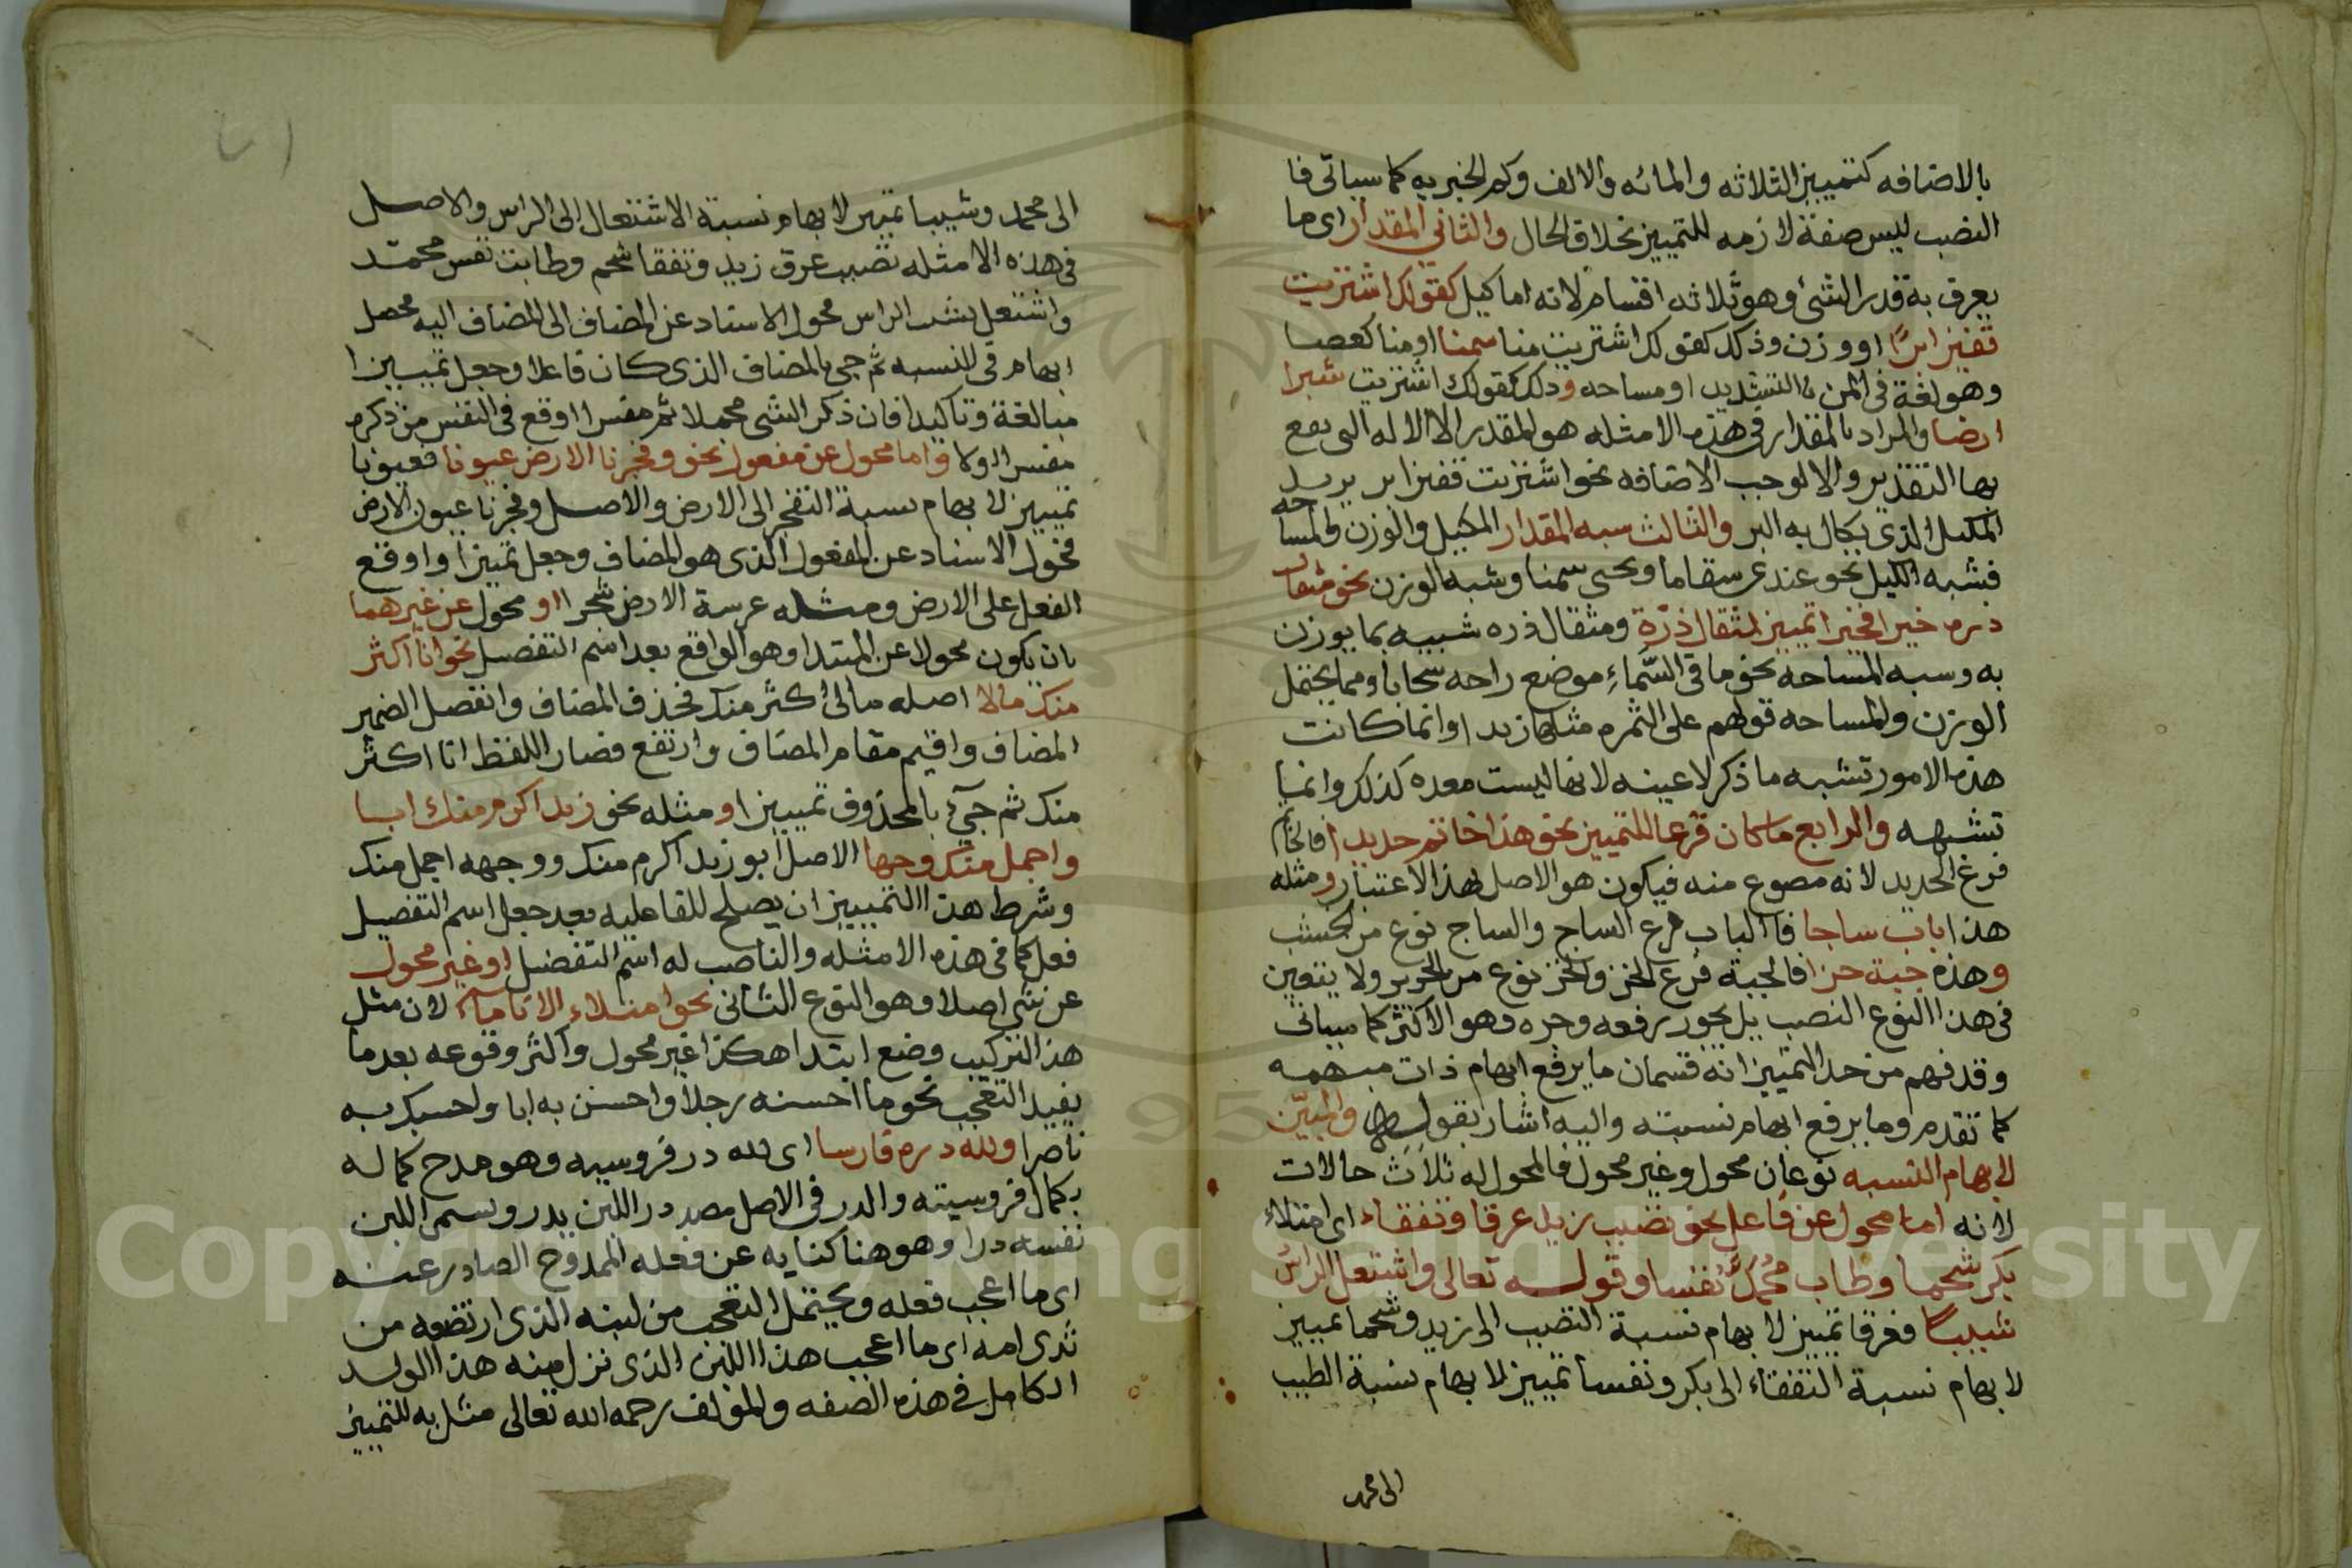 بالاضافه كتمييز الثلاثه والمائه والالف وكم الخبريه كما سياتى فا
النصب ليس صفة لازمه للتمييز بخلاف الحال والثاني المقدار اى ما
يعرف به قدر الشئ وهو ثلاثه اقسام لانه اما كيل كقولك اشتريت
قفيزا برًا او وزن وذلك كقولك اشتريت منا سمنا او منا كعصا
وهو لغة فى المن بالتشديد او مساحه وذلك كقولك اشتريت شبرا
ارضا والمراد بالمقدار فى هذه الامثله هو المقدر لا الاله التى يقع
بها التقدير والا لوجب الاضافه نحو اشتريت قفيز بر يريد
المكيل الذي يكال به البر والثالث شبه المقدار المكيل والوزن والمساحه
فشبه الكيل نحو عندى سقا ما ونحى سمنا وشبه الوزن نحو مثقال
ذره خيرا فخيرا تمييز لمثقال ذرّة ومثقال ذره شبيه بما يوزن
به وشبه المساحه نحو ما فى السَّماءِ موضع راحه سحابا ومما يحتمل
الوزن والمساحه قولهم على الثمره مثلها زبدا وانما كانت
هذه الامور تشبه ما ذكر لا عينه لانها ليست معده كذلك وانما
تشبهه والرابع ما كان فرعا للتمييز نحو هذا خاتم حديدا فالخاتم
فرع الحديد لانه مصوع منه فيكون هو الاصل بهذا الاعتبار ومثله
هذا باب ساجا فاالباب فرع الساج والساج نوع من الخشب
وهذه جبة خزا فالجبة فرع الخز والخز نوع من الحرير ولا يتعين
فى هذا النوع النصب بل يجوز رفعه وجره وهو الاكثر كما سياتى
وقد فهم من حد التمييز انه قسمان ما يرفع ابهام ذات مبهمه
كما تقدم وما يرفع ابهام نسبته واليه اشار بقوله والمبيّن
لابهام النسبه نوعان محول وغير محول فالمحول له ثلاث حالات
لانه اما محول عن فاعل نحو تصبب زيد عرقا وتفقاء اى امتلاء
بكر شحما وطاب مُحمَّدٌ نفسا وقوله تعالى واشتعل الراسُ
شيبا فعرقا تمييز لابهام نسبة التصبب الى زيد وشحما تمييز
لابهام نسبة التفقاء الى بكر ونفسا تمييز لابهام نسبة الطيب
الى محمد
الى محمد وشيبا تمييز لابهام نسبة الاشتعال الى الراس والاصل
فى هذه الامثله تصبب عرق زيد وتفقا شحم وطابت نفس محمّد
واشتعل شيب الراس محول الاسناد عن المضاف الى المضاف اليه فحصل
ابهام فى النسبه ثم جى بالمضاف الذى كان فاعلا وجعل تمييزا
مبالغة وتاكيدا فان ذكر الشى مجملا ثم مفسرا اوقع فى النفس من ذكره
مفسرا اولا واما محول عن مفعول نحو وفجرنا الارض عيونا فعيونا
تمييز لابهام نسبة التفجر الى الارض والاصل وفجرنا عيون الارض
فحول الاسناد عن المفعول الذى هو المضاف وجعل تمييزا واوقع
الفعل على الارض ومثله غرست الارض شجرا او محول عن غيرهما
بان يكون محولا عن المبتدا وهو الواقع بعد اسم التفضيل نحو انا اكثر
منك مالا اصله مالى اكثر منك فحذف المضاف وانفصل الضمير
المضاف واقيم مقام المضاف وارتفع فصار اللفظ انا اكثر
منك ثم جيء بالمحذوف تمييزا ومثله نحو زيد اكرم منك ابا
واجمل منك وجها الاصل ابو زيد اكرم منك ووجهه اجمل منك
وشرط هذا التمييز ان يصلح للفاعليه بعد جعل اسم التفضيل
فعل كما فى هذه الامثله والناصب له اسم التفضيل او غير محول
عن شى اصلا وهو النوع الثانى نحو امتلاء الانا ماء لان مثل
هذا التركيب وضع ابتدا هكذا غير محول واكثر وقوعه بعد ما
يفيد التعجب نحو ما احسنه رجلا واحسن به ابا وحسبك به
ناصرا ولله دره فارسا اى لله در فروسيه وهو مدح كماله
بكمال فروسيته والدر فى الاصل مصدر در اللبن يدر ويسمى اللبن
نفسه درا وهو هنا كنايه عن فعله الممدوح الصادر عنه
اى ما اعجب فعله ويحتمل التعجب من لبنه الذى ارتضعه من
ثدى امه اى ما اعجب هذا اللبن الذى نزل منه هذا الولد
الكامل فى هذه الصفه والمؤلف رحمه الله تعالى مثل به للتمييز
Copyright © King Saud University